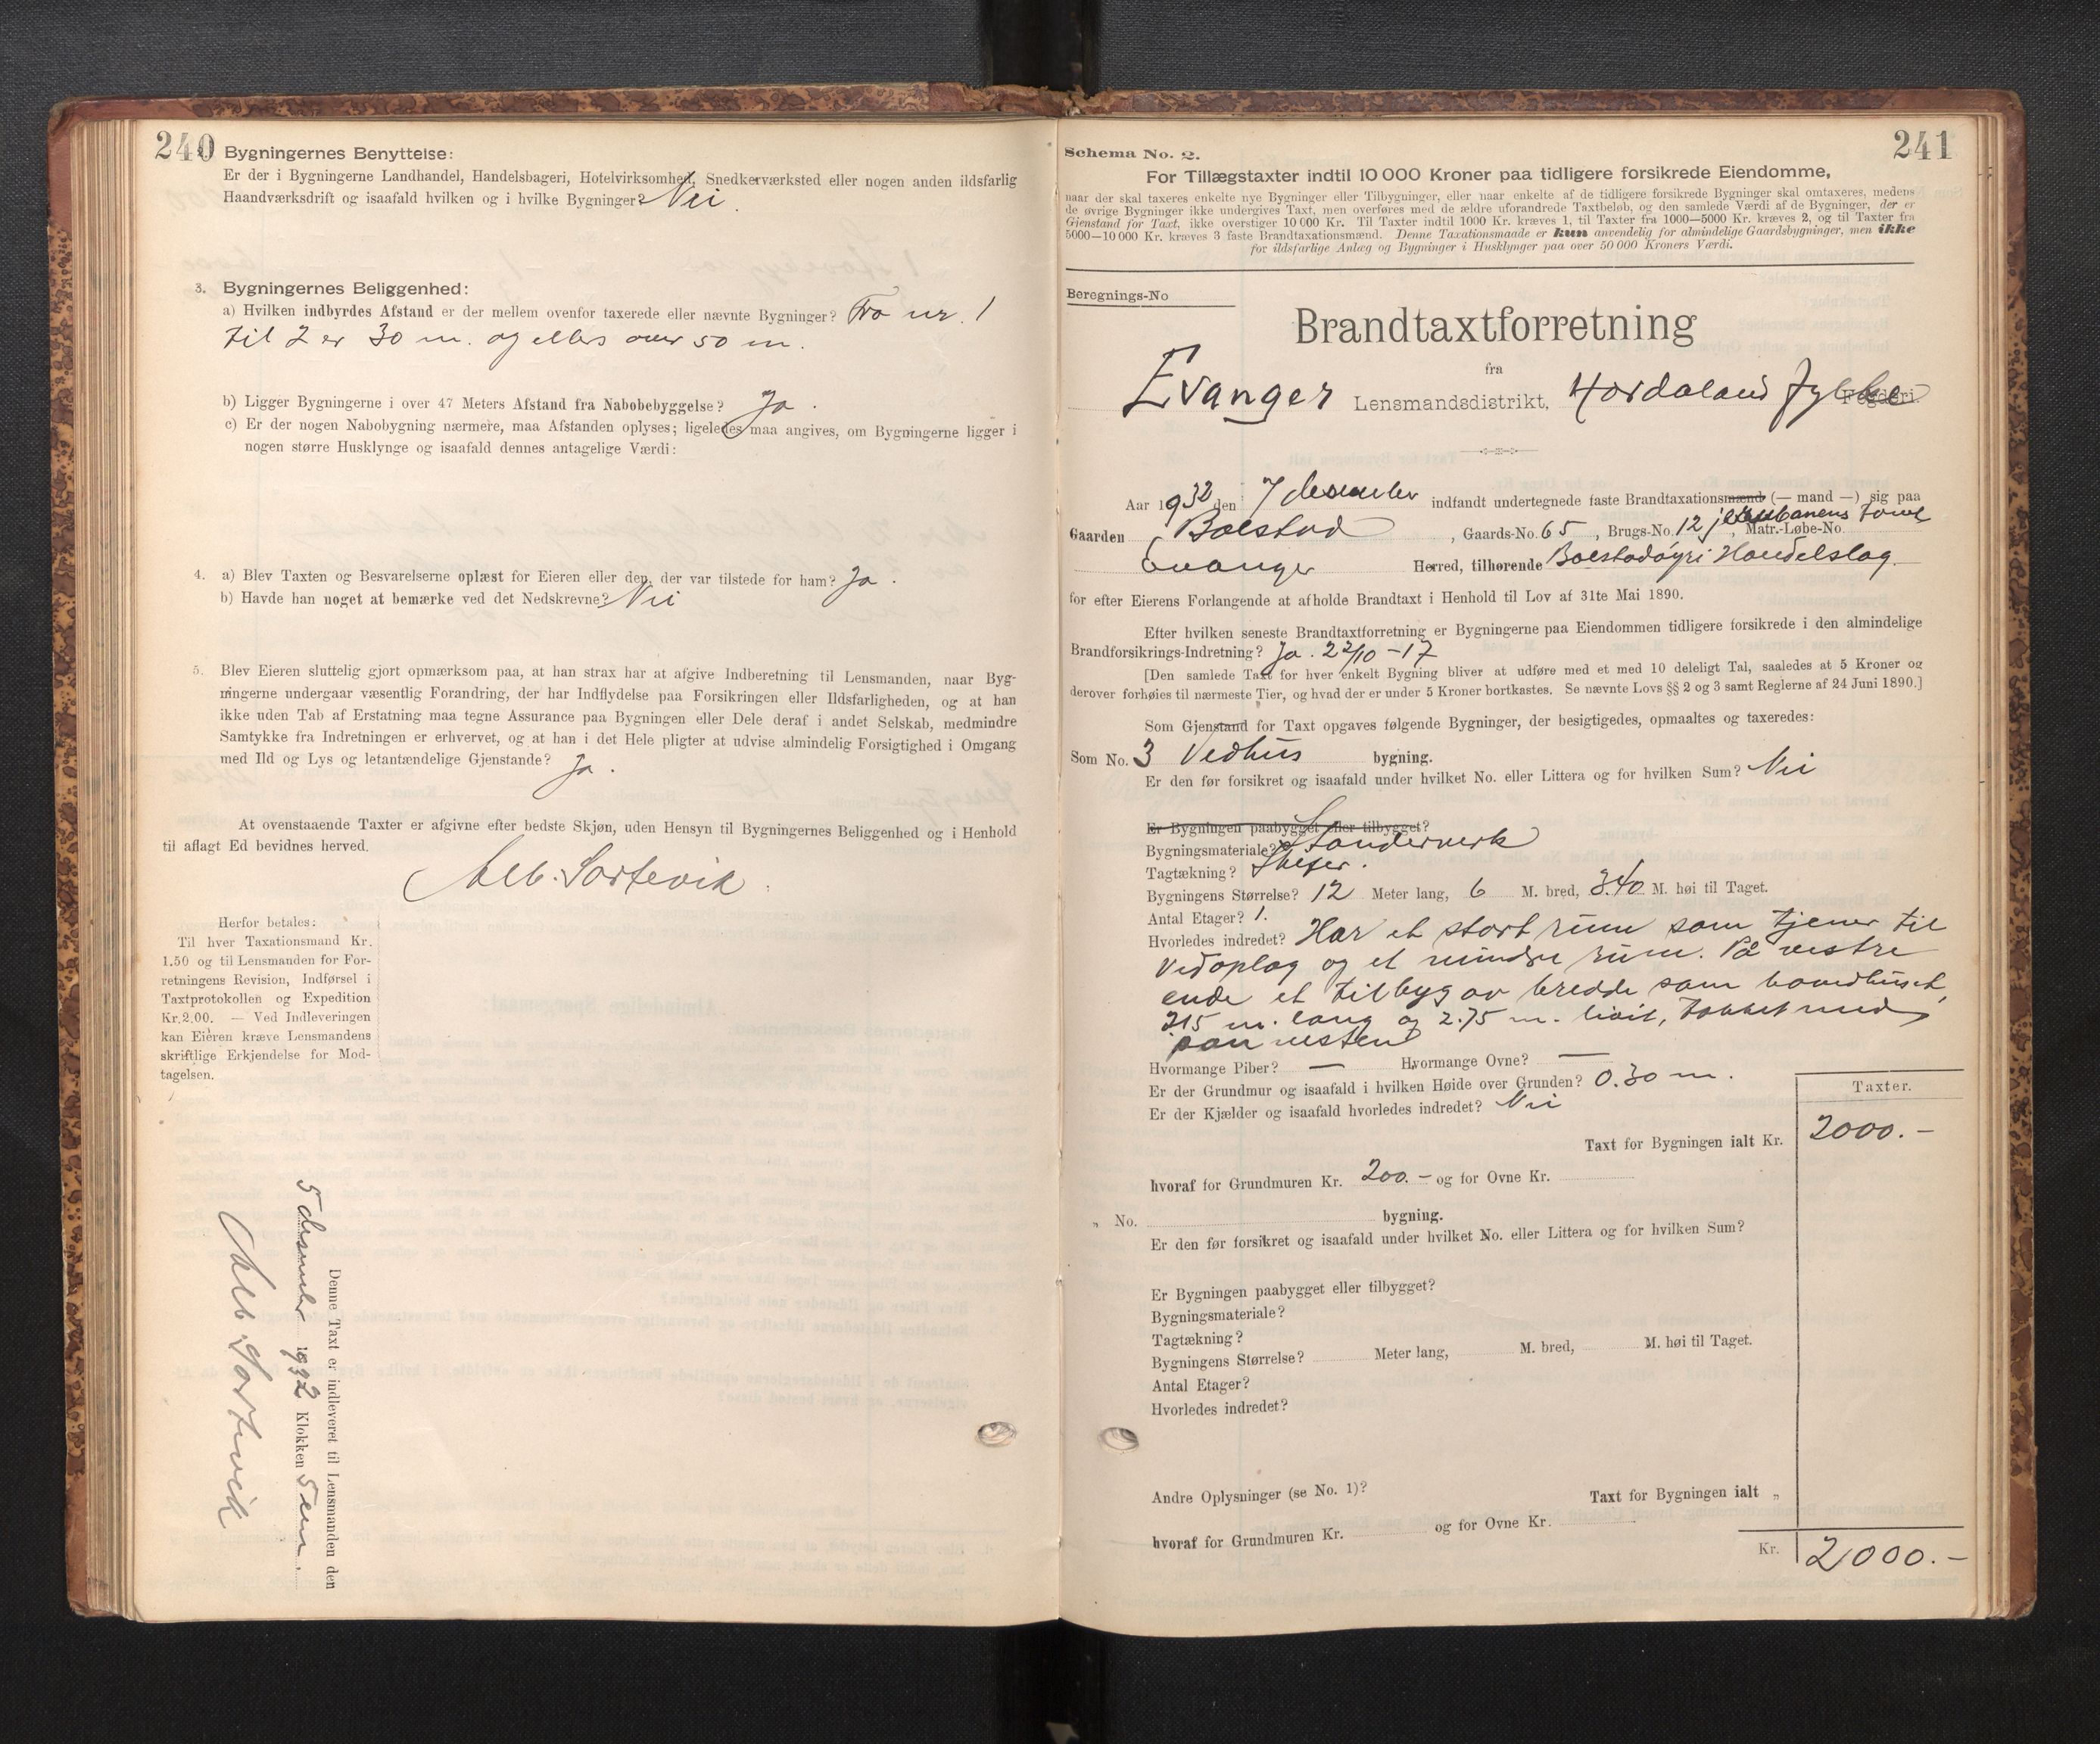 240
Bygningernes Benyttelse:
Er der i Bygningerne Landhandel, Handelsbageri, Hotelvirksomhed, Snedkerværksted eller nogen anden ildsfarlig
Haandværksdrift og isaafald hvilken og i hvilke Bygninger? Nei.
3. Bygningernes Beliggenhed:
a) Hvilken indbyrdes Afstand er der mellem ovenfor taxerede eller nævnte Bygninger? Fra nr. 1
til 2 er 30 m. og ellers over 50 m.
b) Ligger Bygningerne i over 47 Meters Afstand fra Nabobebyggelse? Ja.
c) Er der nogen Nabobygning nærmere, maa Afstanden oplyses; ligeledes maa angives, om Bygningerne ligger i
nogen større Husklynge og isaafald dennes antagelige Værdi:
4. a) Blev Taxten og Besvarelserne oplæst for Eieren eller den, der var tilstede for ham? Ja.
b) Havde han noget at bemærke ved det Nedskrevne? Nei
5. Blev Eieren sluttelig gjort opmærksom paa, at han strax har at afgive Indberetning til Lensmanden, naar Byg-
ningerne undergaar væsentlig Forandring, der har Indflydelse paa Forsikringen eller Ildsfarligheden, og at han
ikke uden Tab af Erstatning maa tegne Assurance paa Bygningen eller Dele deraf i andet Selskab, medmindre
Samtykke fra Indretningen er erhvervet, og at han i det Hele pligter at udvise almindelig Forsigtighed i Omgang
med Ild og Lys og letantændelige Gjenstande? Ja.
At ovenstaaende Taxter er afgivne efter bedste Skjøn, uden Hensyn til Bygningernes Beliggenhed og i Henhold
til aflagt Ed bevidnes herved.
Alb. Sortevik.
Herfor betales:
Til hver Taxationsmand Kr.
1.50 og til Lensmanden for For-
retningens Revision, Indførsel i
Taxtprotokollen og Expedition
Kr. 2.00. — Ved Indleveringen
kan Eieren kræve Lensmandens
skriftlige Erkjendelse for Mod-
tagelsen.
Denne Taxt er indleveret til Lensmanden den
5 desember 1932 Klokken 5 em.
Alb Sortevik
241
Schema No. 2.
For Tillægstaxter indtil 10 000 Kroner paa tidligere forsikrede Eiendomme,
naar der skal taxeres enkelte nye Bygninger eller Tilbygninger, eller naar enkelte af de tidligere forsikrede Bygninger skal omtaxeres, medens
de øvrige Bygninger ikke undergives Taxt, men overføres med de ældre uforandrede Taxtbeløb, og den samlede Værdi af de Bygninger, der er
Gjenstand for Taxt, ikke overstiger 10 000 Kr. Til Taxter indtil 1000 Kr. kræves 1, til Taxter fra 1000—5000 Kr. kræves 2, og til Taxter fra
5000—10 000 Kr. kræves 3 faste Brandtaxationsmænd. Denne Taxationsmaade er kun anvendelig for almindelige Gaardsbygninger, men ikke
for ildsfarlige Anlæg og Bygninger i Husklynger paa over 50 000 Kroners Værdi.
Beregnings-No
Brandtaxtforretning
fra
Evanger Lensmandsdistrikt, Hordaland Fylke Fogderi.
Aar 1932 den 7 desember indfandt undertegnede faste Brandtaxationsmænd (— mand —) sig paa
Gaarden Bolstad, Gaards-No. 65, Brugs-No. 12 Matr.-Løbe-No.
Evanger Herred, tilhørende Bolstadøyri Handelslag.
for efter Eierens Forlangende at afholde Brandtaxt i Henhold til Lov af 31te Mai 1890.
Efter hvilken seneste Brandtaxtforretning er Bygningerne paa Eiendommen tidligere forsikrede i den almindelige
Brandforsikrings-Indretning? Ja. 22/10-17
[Den samlede Taxt for hver enkelt Bygning bliver at udføre med et med 10 deleligt Tal, saaledes at 5 Kroner og
derover forhøies til nærmeste Tier, og hvad der er under 5 Kroner bortkastes. Se nævnte Lovs §§ 2 og 3 samt Reglerne af 24 Juni 1890.]
Som Gjenstand for Taxt opgaves følgende Bygninger, der besigtigedes, opmaaltes og taxeredes:
Som No. 3 Vedhus bygning.
Er den før forsikret og isaafald under hvilket No. eller Littera og for hvilken Sum? Nei
Er Bygningen paabygget eller tilbygget?
Bygningsmateriale? Standerverk
Tagtækning? Skifer.
Bygningens Størrelse? 12 Meter lang, 6 M. bred, 3.40 M. høi til Taget.
Antal Etager? 1.
Hvorledes indredet? Har et stort rum som tjener til
vedoplag og et mindre rum. På vestre
ende et tilbyg av bredde som hovedhuset,
2.15 m. lang og 2.75 m. høit, tækket med
Hvormange Piber? — Hvormange Ovne? —
Er der Grundmur og isaafald i hvilken Høide over Grunden? 0.30 m.
Er der Kjælder og isaafald hvorledes indredet? Nei
Taxter.
Taxt for Bygningen ialt Kr. 2000.-
hvoraf for Grundmuren Kr. 200.- og for Ovne Kr.
„ No. bygning.
Er den før forsikret og isaafald under hvilket No. eller Littera og for hvilken Sum?
Er Bygningen paabygget eller tilbygget?
Bygningsmateriale?
Tagtækning?
Bygningens Størrelse? Meter lang, M. bred, M. høi til Taget.
Antal Etager?
Hvorledes indredet?
Andre Oplysninger (se No. 1)? Taxt for Bygningen ialt „
hvoraf for Grundmuren Kr. og for Ovne Kr.
Kr. 2000.-